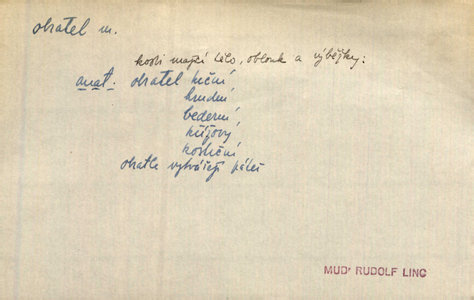 obratel m.
kosti mající tělo, oblouk a výběžky:
anat. obratel krční,
hrudní,
bederní,
křížový
kostrční
obratle vytvářejí páteř
MUDr RUDOLF LINC